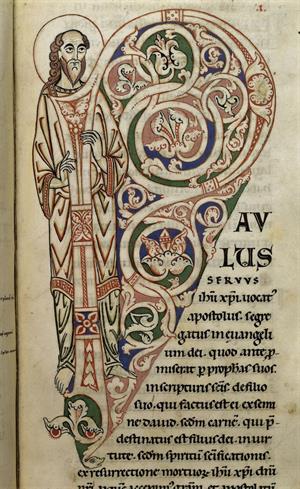 P
AV
LUS
SERVUS
ih̅u xp̅i. vocat᷒
apostolus. segre
gatus in euangeli
um dei. quod ante ꝓ
miserat ꝑ prophas suos.
in scripturis sc̅is. de filio
suo, qui factus est ei ex semi
ne dauid. sc̅dm carnē. qui p̄
destinatus est filius dei. in uir
tute. sc̅dm spiritū sc̅ificationis.
ex resurrectione mortuoꝝ ih̅u xp̅i dn̅i